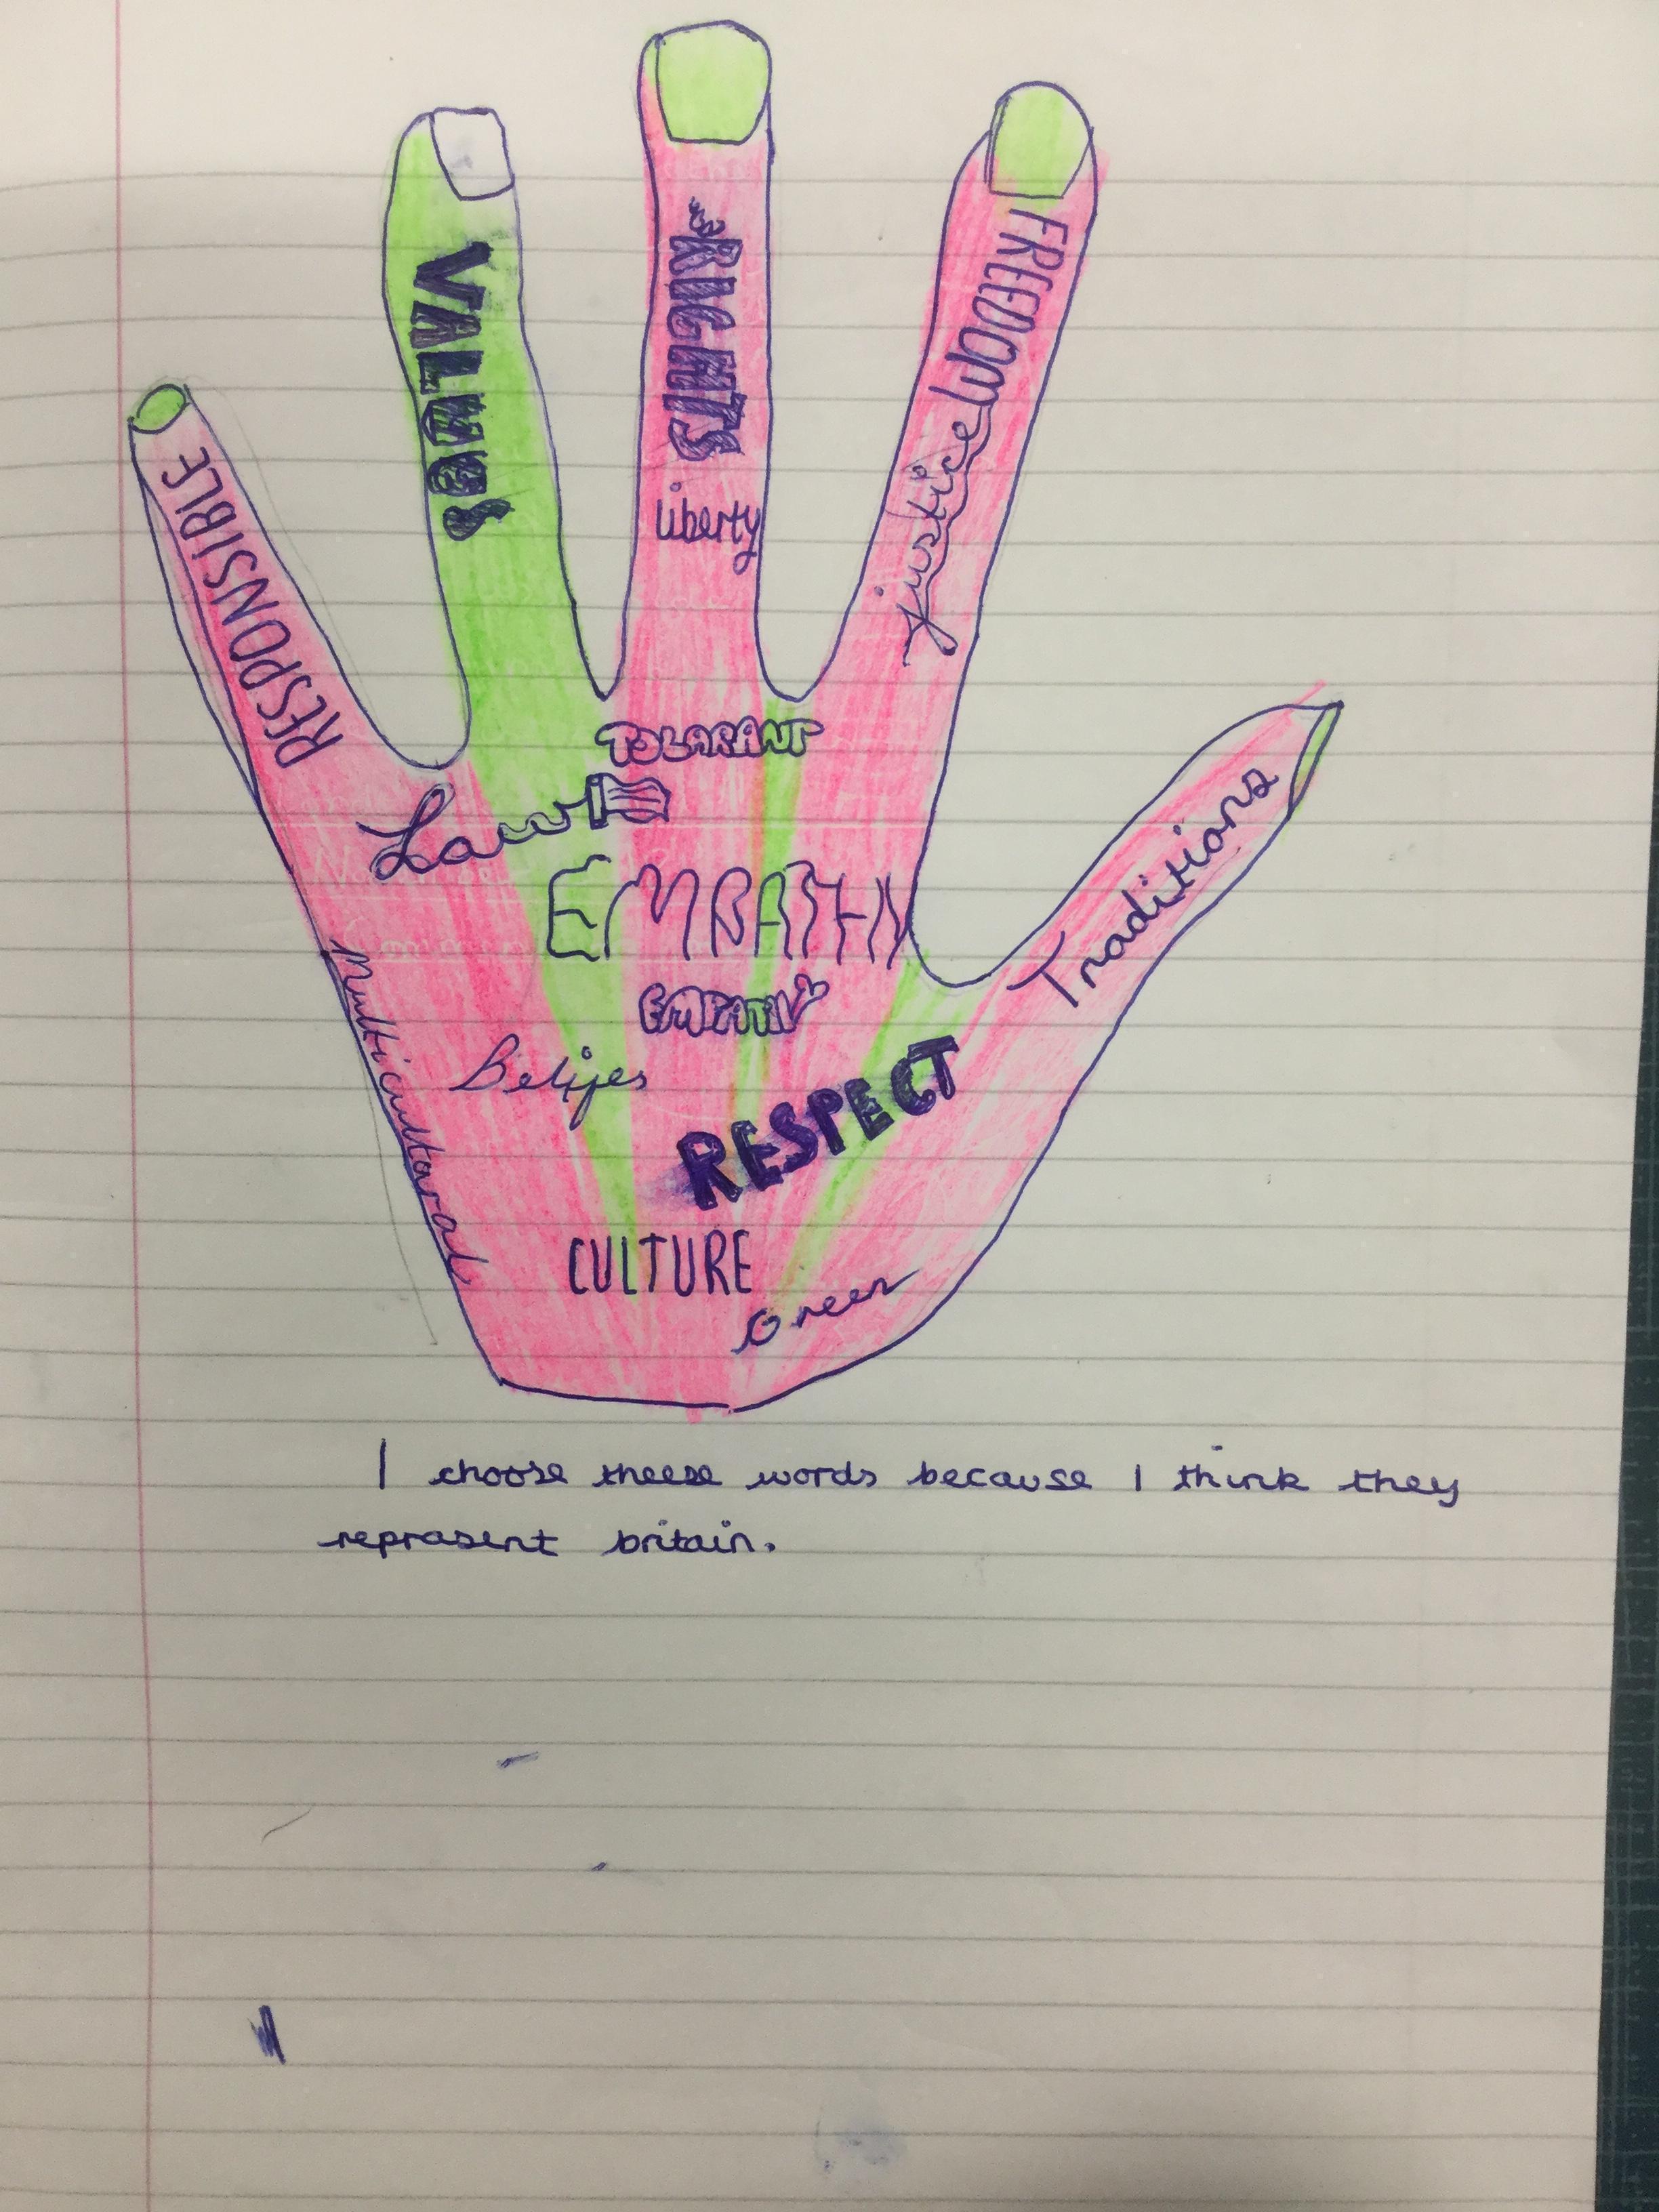 RESPONSIBLE
VALUES
RIGHTS
liberty
FREEDOM
justice
Traditions
TOLARANT
Law
EMPATHY
EMPATHY
Multicultural
Belifes
RESPECT
CULTURE
Green
I choose theese words because I think they
reprasent britain.